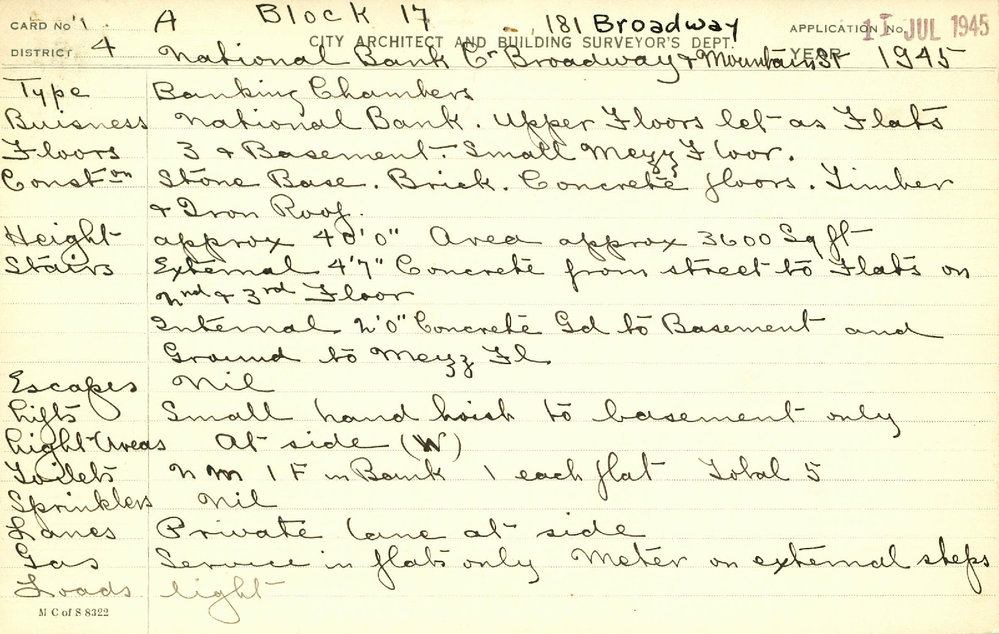 CARD No 1 A Block 17 181 Broadway APPLICATION No 11 JUL 1945
CITY ARCHITECT AND BUILDING SURVEYOR'S DEPT.
DISTRICT 4 National Bank Cr Broadway & Mountain St YEAR 1945
Type Banking Chambers
Buisness National Bank. Upper Floors let as Flats
Floors 3 & Basement. Small Mezz Floor.
Const on Stone Base. Brick. Concrete floors. Timber
& Iron Roof.
Height approx 40'0" Area approx 3600 Sq ft
Stairs External 4'7" Concrete from street to Flats on
2nd & 3rd Floor
Internal 2'0" Concrete Gd to Basement and
Ground to Mezz Fl
Escapes Nil
Lifts Small hand hoist to basement only
Light Areas At side (W)
Toilets 2 M 1 F in Bank 1 each flat Total 5
Sprinklers Nil
Lanes Private lane at side
Gas Service in flats only Meter on external steps
Loads light
M C of S 8322